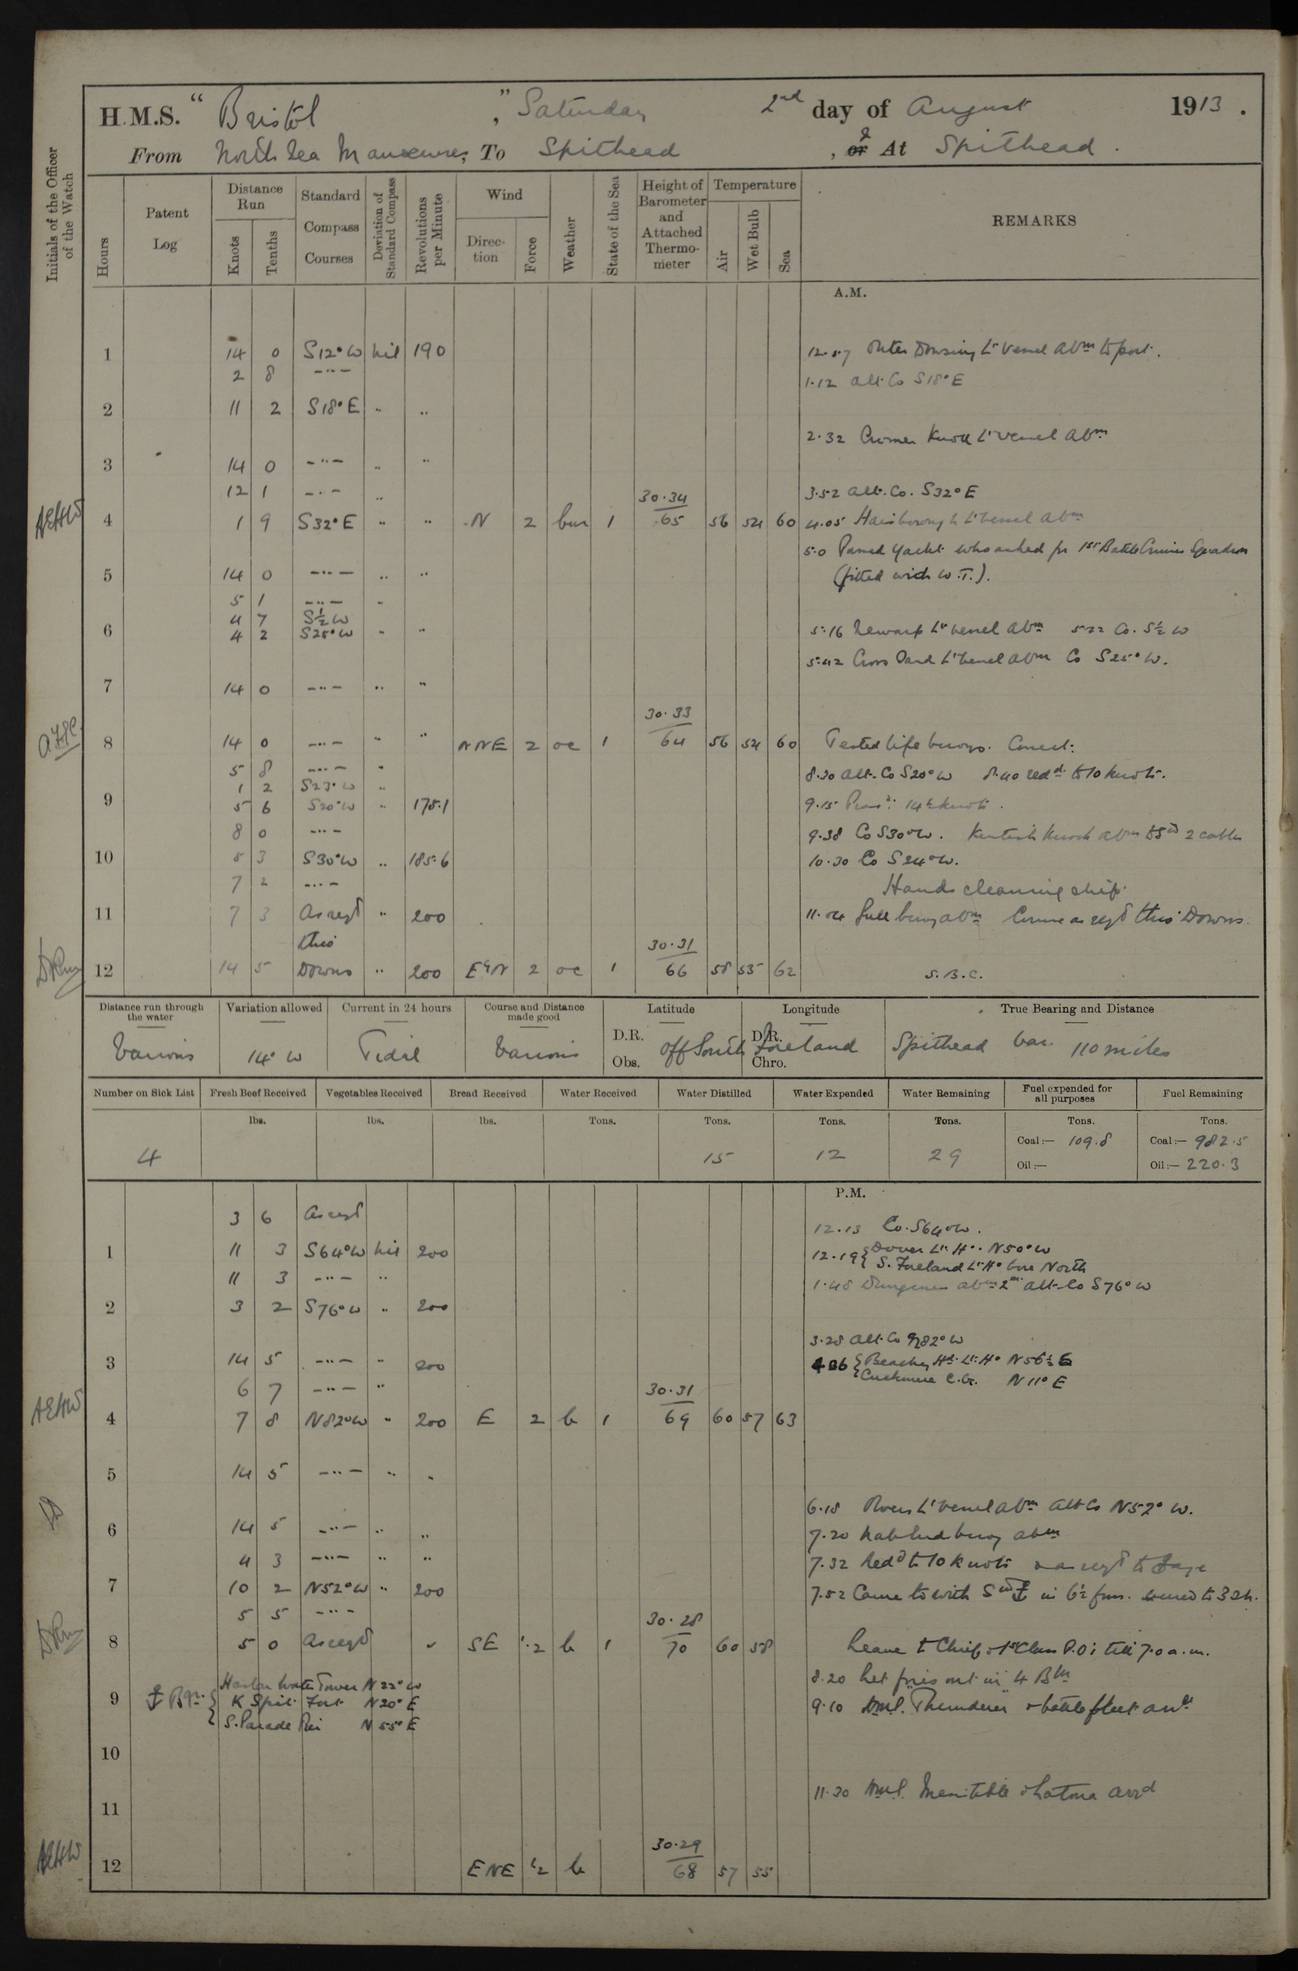 H.M.S. "Bristol", Saturday 2nd day of August 1913.
From North Sea Manoeuvres, To Spithead, or & At Spithead.
Initials of the Officer of the Watch
Hours
Patent Log
Distance Run
Knots
Tenths
Standard Compass Courses
Deviation of Standard Compass
Revolutions per Minute
Wind
Direction
Force
Weather
State of the Sea
Height of Barometer and Attached Thermometer
Temperature
Air
Wet Bulb
Sea
REMARKS
A.M.
1 14 0 S12°W nil 190 12.57 Outer Dowsing Lt Vessel Abm to port.
2 8 -"- 1.12 Alt. Co S18°E
2 11 2 S18°E " "
2.32 Cromer Knoll Lt Vessel Abm
3 14 0 -"- " "
12 1 -"- " 30.34 3.52 Alt. Co. S32°E
AEHW 4 1 9 S32°E " " N 2 bm 1 65 56 54 60 4.05 Haisborough Lt Vessel Abm
5.0 Passed Yacht who asked for 1st Battle Cruiser Squadron
5 14 0 -"- " " (fitted with W.T.).
5 1 -"- "
4 7 S½W
6 4 2 S25°W " " 5.16 Newarp Lt Vessel Abm 5.22 Co. S½W
5.42 Cross Sand Lt Vessel Abm Co S25°W.
7 14 0 -"- " "
30.33
8 14 0 -"- " " NNE 2 oc 1 64 56 54 60 Tested life buoys. Correct:
5 8 -"- " 8.30 Alt. Co S20°W 8.40 redd to 10 knots.
1 2 S23°W "
9 5 6 S20°W " 175.1 9.15 14½ knots.
8 0 -"- 9.38 Co S30°W. Kentish Knock abm to Sd 2 cables
10 5 3 S30°W " 185.6 10.30 Co S24°W.
7 2 -"- Hands cleaning ship.
11 7 3 As reqd " 200 11.04 Gull buoy abm Course as reqd thro' Downs.
thro' 30.31
12 14 5 Downs " 200 E'N 2 oc 1 66 58 55 62 S.B.C.
Distance run through the water
Variation allowed
Current in 24 hours
Course and Distance made good
Latitude
Longitude
True Bearing and Distance
Various 14° W Tidal Various D.R. Obs. off South D.R. Chro. Foreland Spithead 110 miles
Number on Sick List
Fresh Beef Received
Vegetables Received
Bread Received
Water Received
Water Distilled
Water Expended
Water Remaining
Fuel expended for all purposes
Fuel Remaining
lbs. lbs. lbs. Tons. Tons. Tons. Tons. Tons. Tons.
4 15 12 29 Coal:— 109.8 Coal:— 982.5
Oil:— Oil:— 220.3
P.M.
3 6 As reqd 12.13 Co. S64°W.
1 11 3 S64°W nil 200 12.19 { Dover Lt. Ho. N50°W
S. Foreland Lt. Ho bore North
11 3 -"- " 1.48 Dungeness abm 2m alt. Co S76°W
2 3 2 S76°W " 200
3.28 Alt. Co N82°W
3 14 5 -"- " 200 4.06 { Beachy Hd. Lt. Ho N56½E
Cuckmere C.G. N11°E
6 7 -"- " 30.31
AEHW 4 7 8 N82°W " 200 E 2 b 1 69 60 57 63
5 14 5 -"- " "
6.18 Owers Lt Vessel abm Alt Co N52°W.
6 14 5 -"- " " 7.20 Nab End buoy abm
4 3 -"- " " 7.32 Redd to 10 knots & as reqd to
7 10 2 N52°W " 200 7.52 Came to with Sd in 6½ fms. veered to 3 sh.
5 5 -"- 30.28
8 5 0 As reqd " SE 1.2 b 1 70 60 58 Leave to Chief & 1st Class P.O's till 7.0 a.m.
8.20 Let fires out in 4 Brs
Bgs: { Water Tower N22°W
9 K Spit Fort N20°E 9.10 Thunderer & battlefleet arrd
S. Parade Pier N55°E
10
11.30 Inevitable & Latona arrd
11
30.29
AEHW 12 ENE 1.2 b 68 57 55